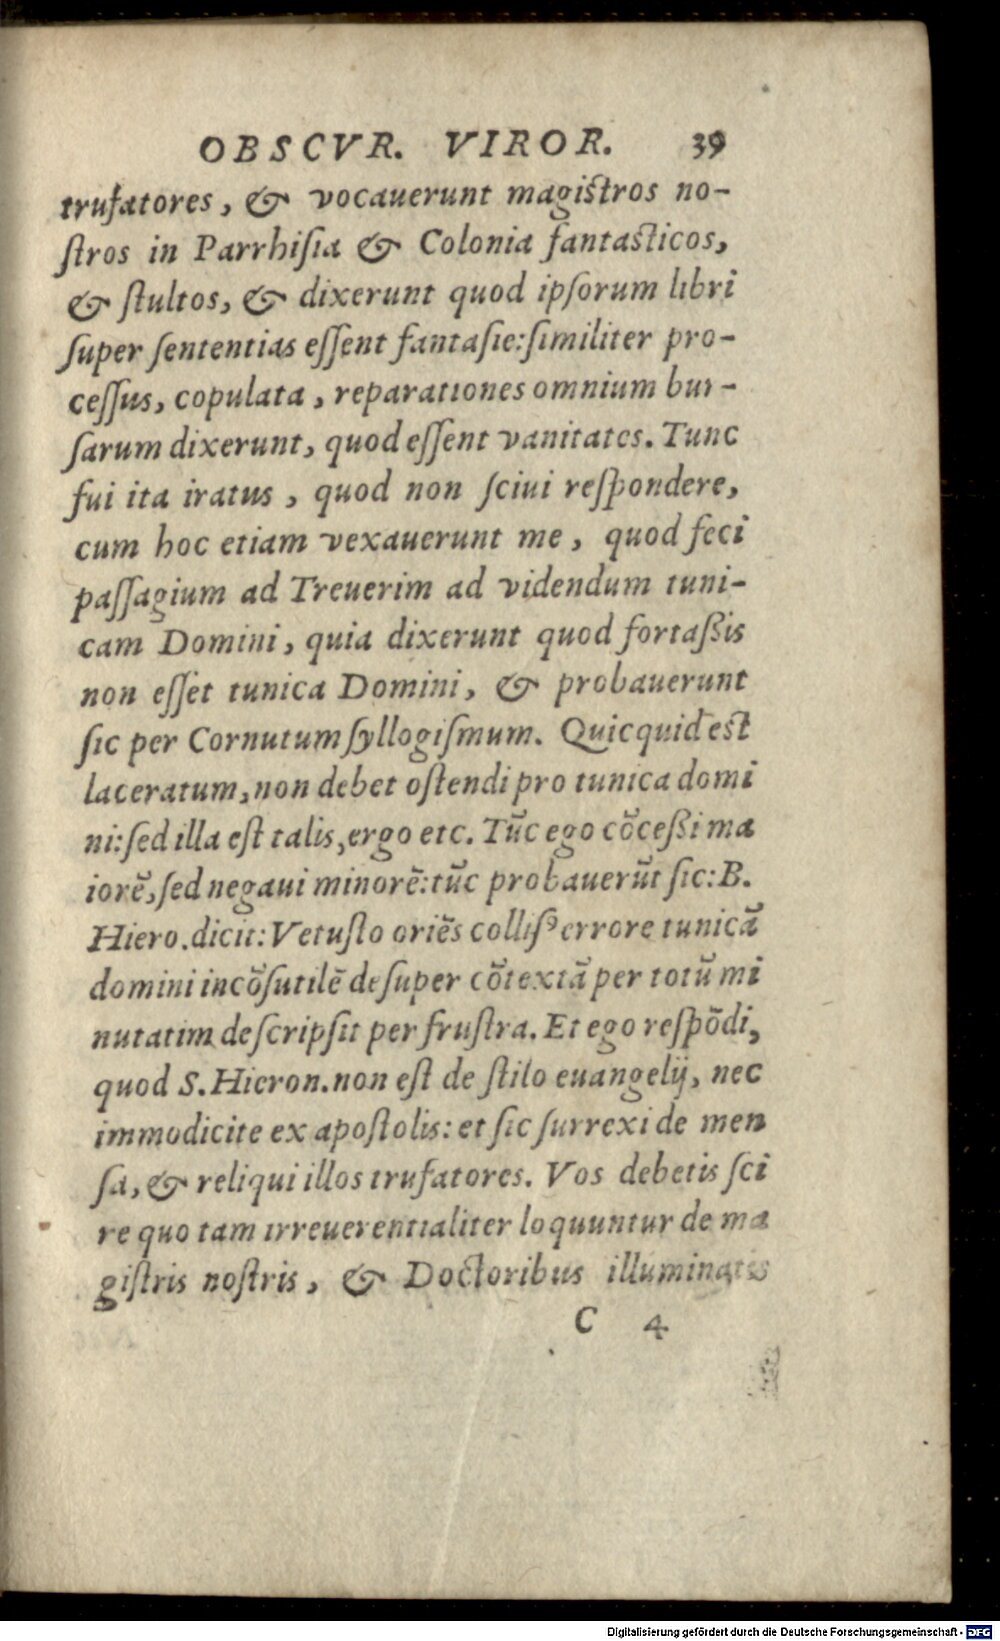 OBSCVR. VIROR. 39
trufatores, & vocauerunt magistros no-
ſtros in Parrhiſia & Colonia fantasticos,
& ſtultos, & dixerunt quod ipſorum libri
ſuper ſententias eſſent fantaſie:ſimiliter pro-
ceſſus, copulata, reparationes omnium bur-
ſarum dixerunt, quod eſſent vanitates. Tunc
fui ita iratus, quod non ſciui reſpondere,
cum hoc etiam vexauerunt me, quod feci
paſſagium ad Treuerim ad videndum tuni-
cam Domini, quia dixerunt quod fortaßis
non eſſet tunica Domini, & probauerunt
ſic per Cornutum ſyllogiſmum. Quicquid est
laceratum, non debet oſtendi pro tunica domi
ni:ſed illa eſt talis, ergo etc. Tūc ego cōceßi ma
iorē, ſed negaui minorē:tūc probauerūt ſic:B.
Hiero.dicit: Vetuſto oriēs colliſꝰ errore tunicā
domini incōſutilē deſuper cōtextā per totū mi
nutatim deſcripſit per fruſtra. Et ego reſpōdi,
quod S. Hieron. non eſt de ſtilo euangelij, nec
immodicite ex apoſtolis: et ſic ſurrexi de men
ſa, & reliqui illos trufatores. Vos debetis ſci
re quo tam irreuerentialiter loquuntur de ma
giſtris noſtris, & Doctoribus illuminatis
C 4
Digitalisierung gefördert durch die Deutsche Forschungsgemeinschaft - DFG